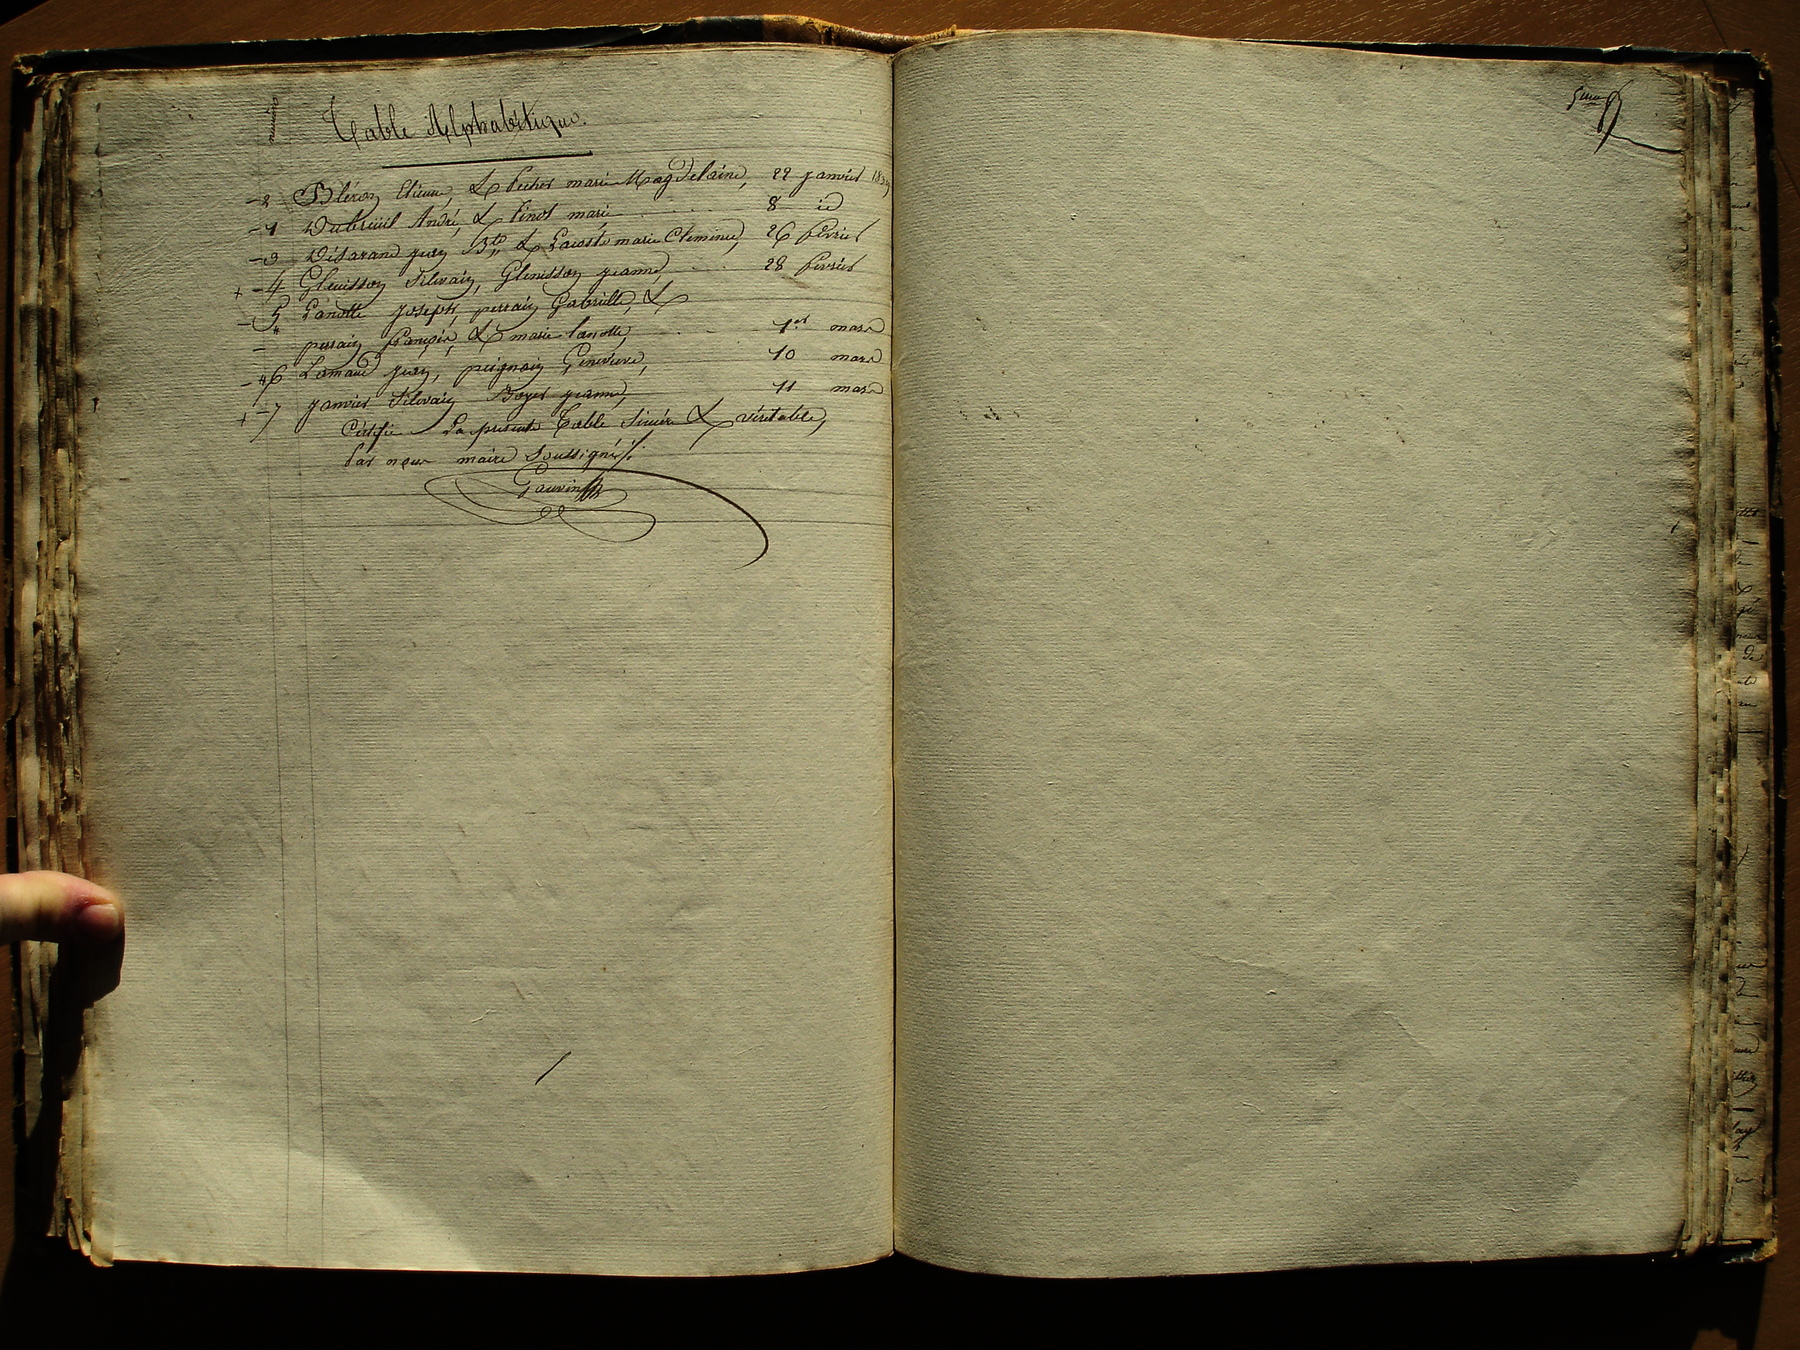 Table Alphabétique.
- 2 Bléron Etienne, & Pecher marie Magdelaine, 22 janvier
- 1 Dubreüil André, & Pinot marie 8 id
- 3 Désarand jean Bte & Lacoste marie Clemence, 26 février
+ - 4 Glenisson Silvain, Glenisson jeanne, 28 fevrier
- 5 Lanotte joseph, perrain Gabrielle, &
- " perrain françois, & marie lanotte, 1er mars
- 6 Lamaud jean, peignain Génevieve, 10 mars
+ - 7 janvier Silvain Boyer jeanne, 11 mars
Certifié La presente Table Sincère & véritable,
Par nous maire Soussigné
Gauvin